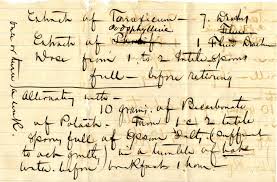 Extract of Taraxicum — 7. drops
Podophyllin
Extract of 1 Fluid Dram
Dose from 1. to 2 Table spoons
full — before retiring
Alternating with
10 grains of Bicarbonate
of Potash. From 1 to 2 table
spoons full of Epsom Salt (sufficient
to act gently) in a tumbler of hot
water before breakfast 1 hour —
one or twice a week.